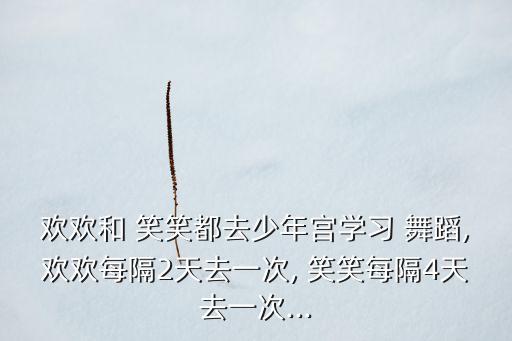 欢欢和 笑笑都去少年宫学习 舞蹈,
欢欢每隔2天去一次, 笑笑每隔4天
去一次...